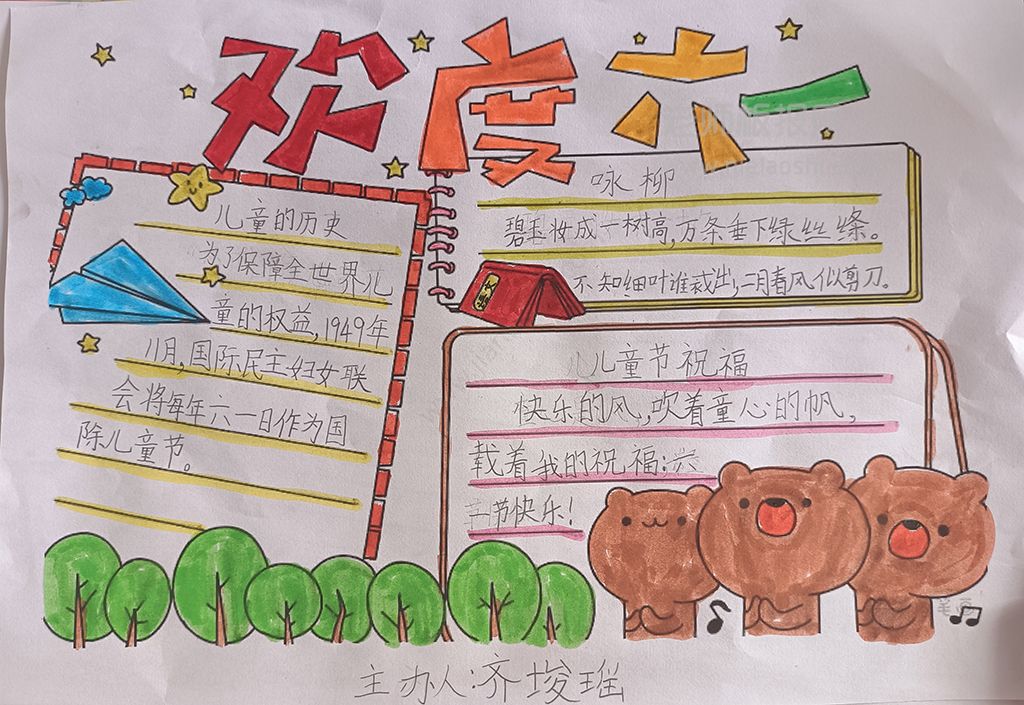 欢度六一
儿童的历史
为了保障全世界儿
童的权益,1949年
11月,国际民主妇女联
会将每年六一日作为国
除儿童节。
咏柳
碧玉妆成一树高,万条垂下绿丝绦。
不知细叶谁裁出,二月春风似剪刀。
儿童节祝福
快乐的风,吹着童心的帆,
载着我的祝福:六
一节快乐!
主办人:齐埈瑶